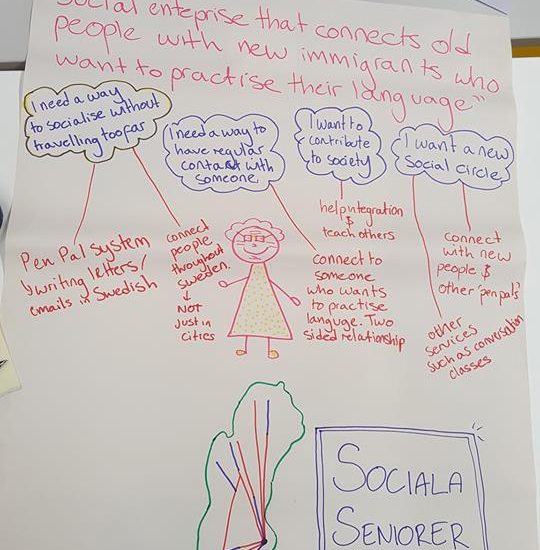 Social enteprise that connects old
people with new immigrants who
want to practise their language"
I need a way
to socialise without
travelling too far
I need a way to
have regular
contact with
someone
I want to
contribute
to society
I want a new
social circle
Pen Pal system
writing letters/
emails in Swedish
connect
people
throughout
Sweden.
NOT
just in
cities
help integration
&
teach others
connect to
someone
who wants
to practise
languge. Two
sided relationship
other
services
such as conversation
classes
connect
with new
people &
other 'pen pals'
SOCIALA
SENIORER